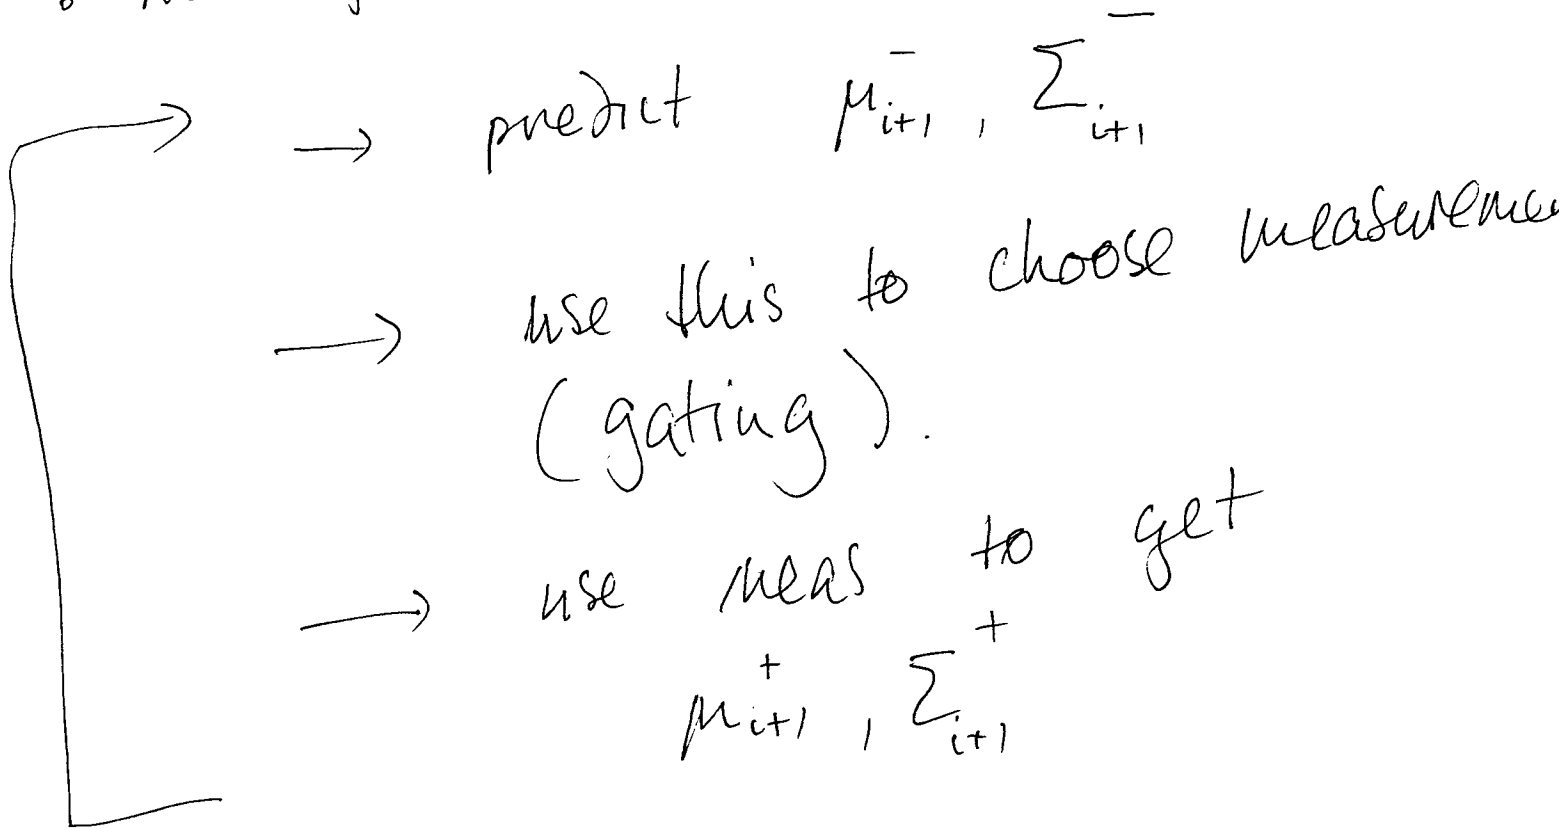 → predict μ⁻ᵢ₊₁ , Σ⁻ᵢ₊₁
→ use this to choose
(gating).
→ use meas to get
μ⁺ᵢ₊₁ , Σ⁺ᵢ₊₁